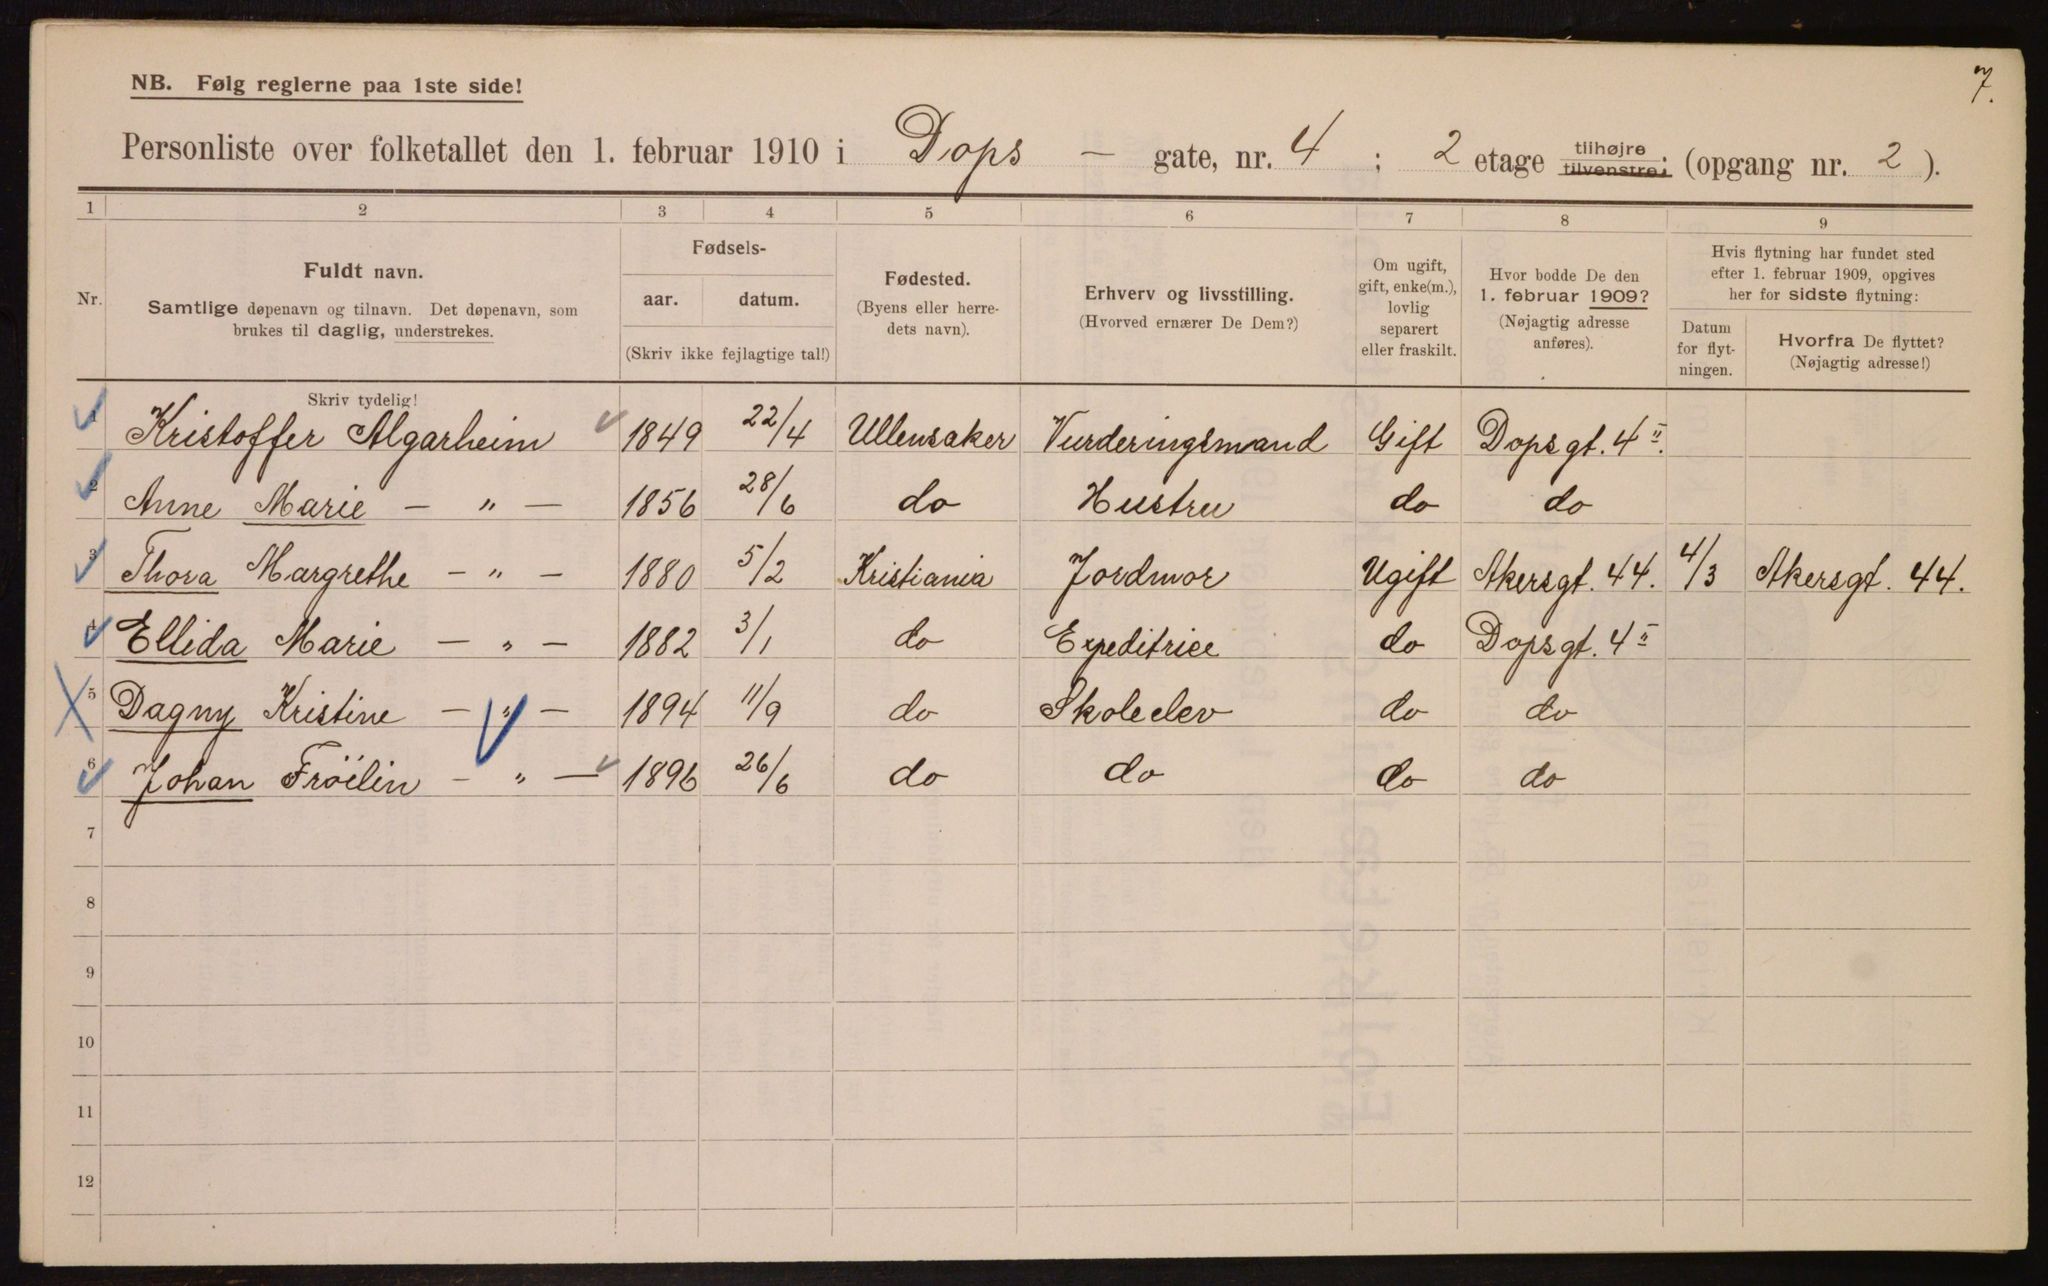 7.
NB. Følg reglerne paa 1ste side!
Personliste over folketallet den 1. februar 1910 i Dops – gate, nr. 4 ; 2 etage tilhøjre tilvenstre; (opgang nr. 2 ).
1 2 3 4 5 6 7 8 9
Nr.
Fuldt navn.
Samtlige døpenavn og tilnavn. Det døpenavn, som
brukes til daglig, understrekes.
Fødsels-
aar. datum.
(Skriv ikke fejlagtige tal!)
Fødested.
(Byens eller herre-
dets navn).
Erhverv og livsstilling.
(Hvorved ernærer De Dem?)
Om ugift,
gift, enke(m.),
lovlig
separert
eller fraskilt.
Hvor bodde De den
1. februar 1909?
(Nøjagtig adresse
anføres).
Hvis flytning har fundet sted
efter 1. februar 1909, opgives
her for sidste flytning:
Datum
for flyt-
ningen.
Hvorfra De flyttet?
(Nøjagtig adresse!)
Skriv tydelig!
1 Kristoffer Algarheim 1849 22/4 Ullensaker Vurderingsmand Gift Dopsgt. 4 II.
2 Anne Marie – " – 1856 28/6 do Hustru do do
3 Thora Margrethe – " – 1880 5/2 Kristiania Jordmor Ugift Akersgt. 44. 4/3 Akersgt. 44.
4 Ellida Marie – " – 1882 3/1 do Expeditrice do Dopsgt. 4 II
5 Dagny Kristine – " – 1894 11/9 do Skoleelev do do
6 Johan Fröilin – " – 1896 26/6 do do do do
7
8
9
10
11
12